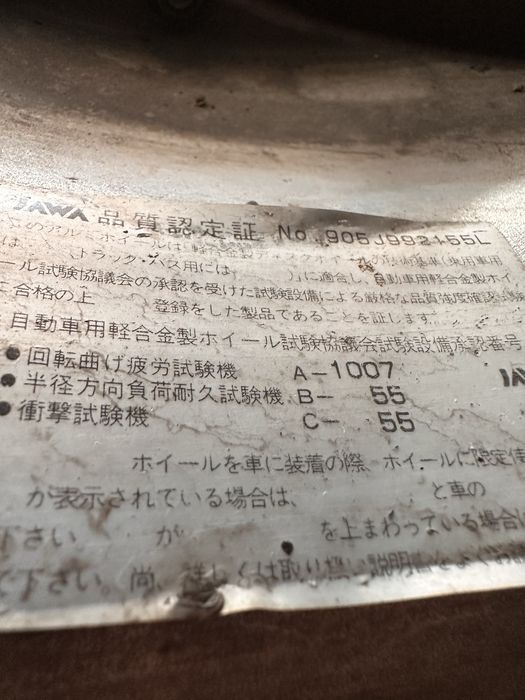 JAWA 品質認定証 No. 905J992155L
このアルミホイールは、軽合金製ディスクホイールの技術基準(乗用車用
は、 トラック・バス用には、 )に適合し、自動車用軽合金製ホイ
ール試験協議会の承認を受けた試験設備による厳格な品質強度確認試験
に合格の上 登録をした製品であることを証します。
自動車用軽合金製ホイール試験協議会試験設備承認番号
●回転曲げ疲労試験機 A-1007
●半径方向負荷耐久試験機 B- 55
●衝撃試験機 C- 55
ホイールを車に装着の際、ホイールに限定
が表示されている場合は、 と車の
下さい が を上まわっている場合
て下さい。尚、詳しくは取り扱い説明書をよくお